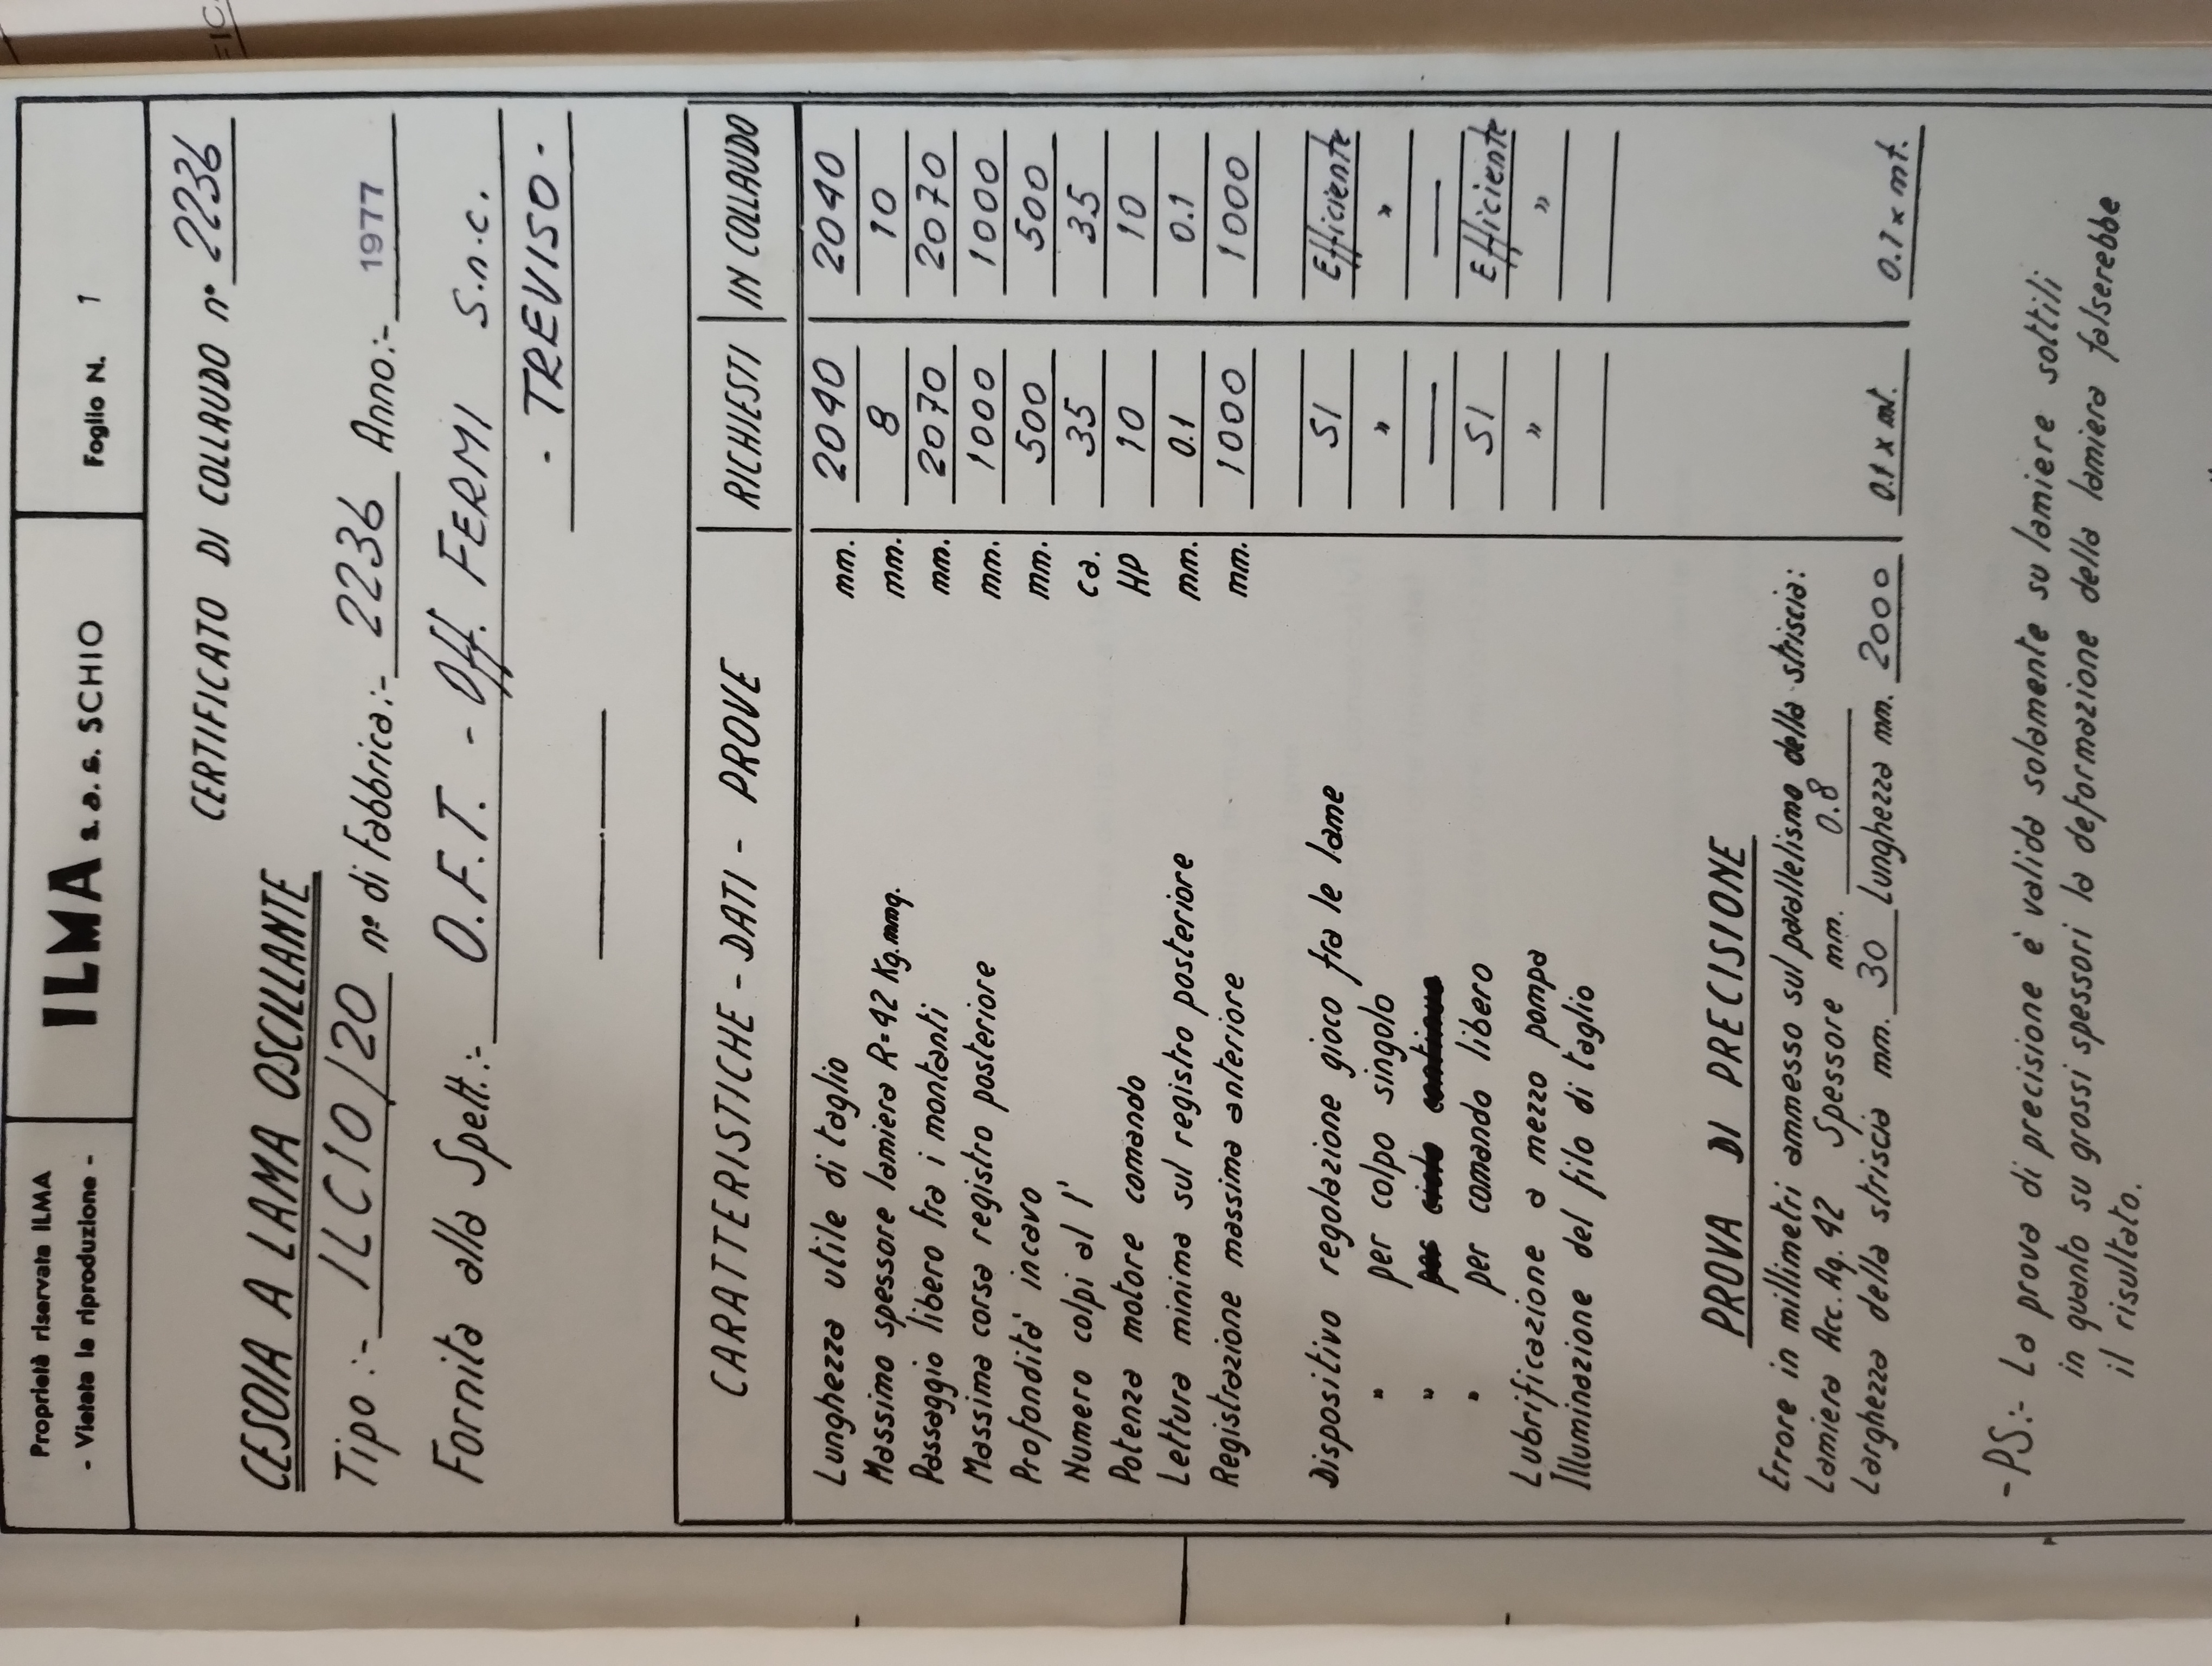 Proprietà riservata ILMA
- Vietata la riproduzione -
ILMA s.a.s. SCHIO
Foglio N. 1
CERTIFICATO DI COLLAUDO n° 2236
CESOIA A LAMA OSCILLANTE
Tipo:- ILC10/20 n° di fabbrica:- 2236 Anno:- 1977
Fornita alla Spett:- O.F.T. - Off. FERMI S.n.c.
- TREVISO -
CARATTERISTICHE - DATI - PROVE RICHIESTI IN COLLAUDO
Lunghezza utile di taglio mm. 2040 2040
Massimo spessore lamiera R=42 Kg.mmq. mm. 8 10
Passaggio libero fra i montanti mm. 2070 2070
Massima corsa registro posteriore mm. 1000 1000
Profondita' incavo mm. 500 500
Numero colpi al 1' ca. 35 35
Potenza motore comando HP 10 10
Lettura minima sul registro posteriore mm. 0.1 0.1
Registrazione massima anteriore mm. 1000 1000
Dispositivo regolazione gioco fra le lame SI Efficiente
" per colpo singolo " "
" per ciclo continuo — —
" per comando libero SI Efficiente
Lubrificazione a mezzo pompa " "
Illuminazione del filo di taglio
PROVA DI PRECISIONE
Errore in millimetri ammesso sul parallelismo della striscia:
Lamiera Acc. Aq. 42 Spessore mm. 0.8
Larghezza della striscia mm. 30 Lunghezza mm. 2000 0.1 x mt. 0.1 x mt.
- PS:- La prova di precisione è valida solamente su lamiere sottili
in quanto su grossi spessori la deformazione della lamiera falserebbe
il risultato.